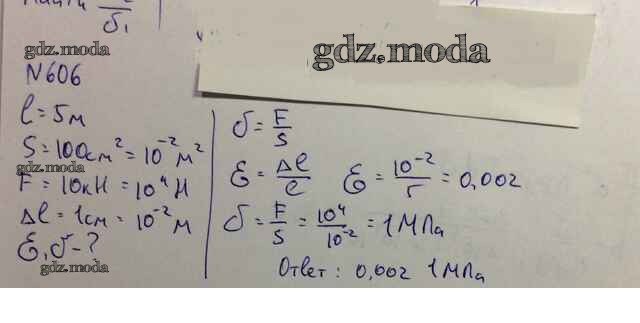 Найти
σ₁
gdz.moda
gdz.moda
N606
l = 5м
S = 100см² = 10⁻² м²
gdz.moda
F = 10кН = 10⁴ Н
Δl = 1см = 10⁻² м
ε, σ - ?
gdz.moda
σ = F/S
ε = Δl/l ε = 10⁻²/5 = 0,002
σ = F/S = 10⁴/10⁻² = 1МПа
Ответ: 0,002 1МПа